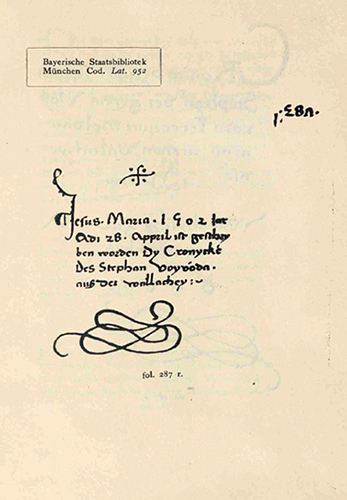 Bayerische Staatsbibliotek
München Cod. Lat. 952
Jesus. Maria. 1502 Jar
Adi 28. Appril ist geschry
ben worden Dy Cronyckt
Des Stephan Voyvoda.
auß der wallachey:~
fol. 287 r.